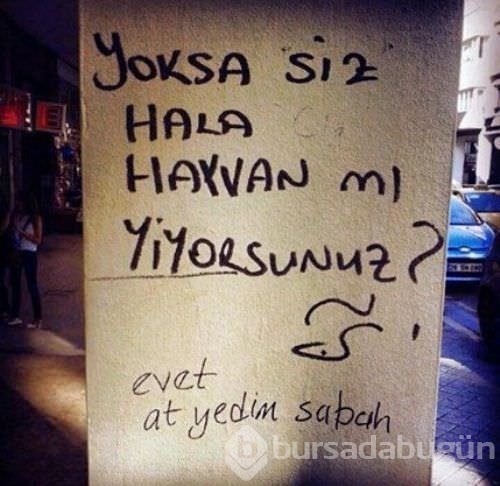 YOKSA SİZ
HALA
HAYVAN MI
YİYORSUNUZ?
evet
at yedim sabah
bursadabugün